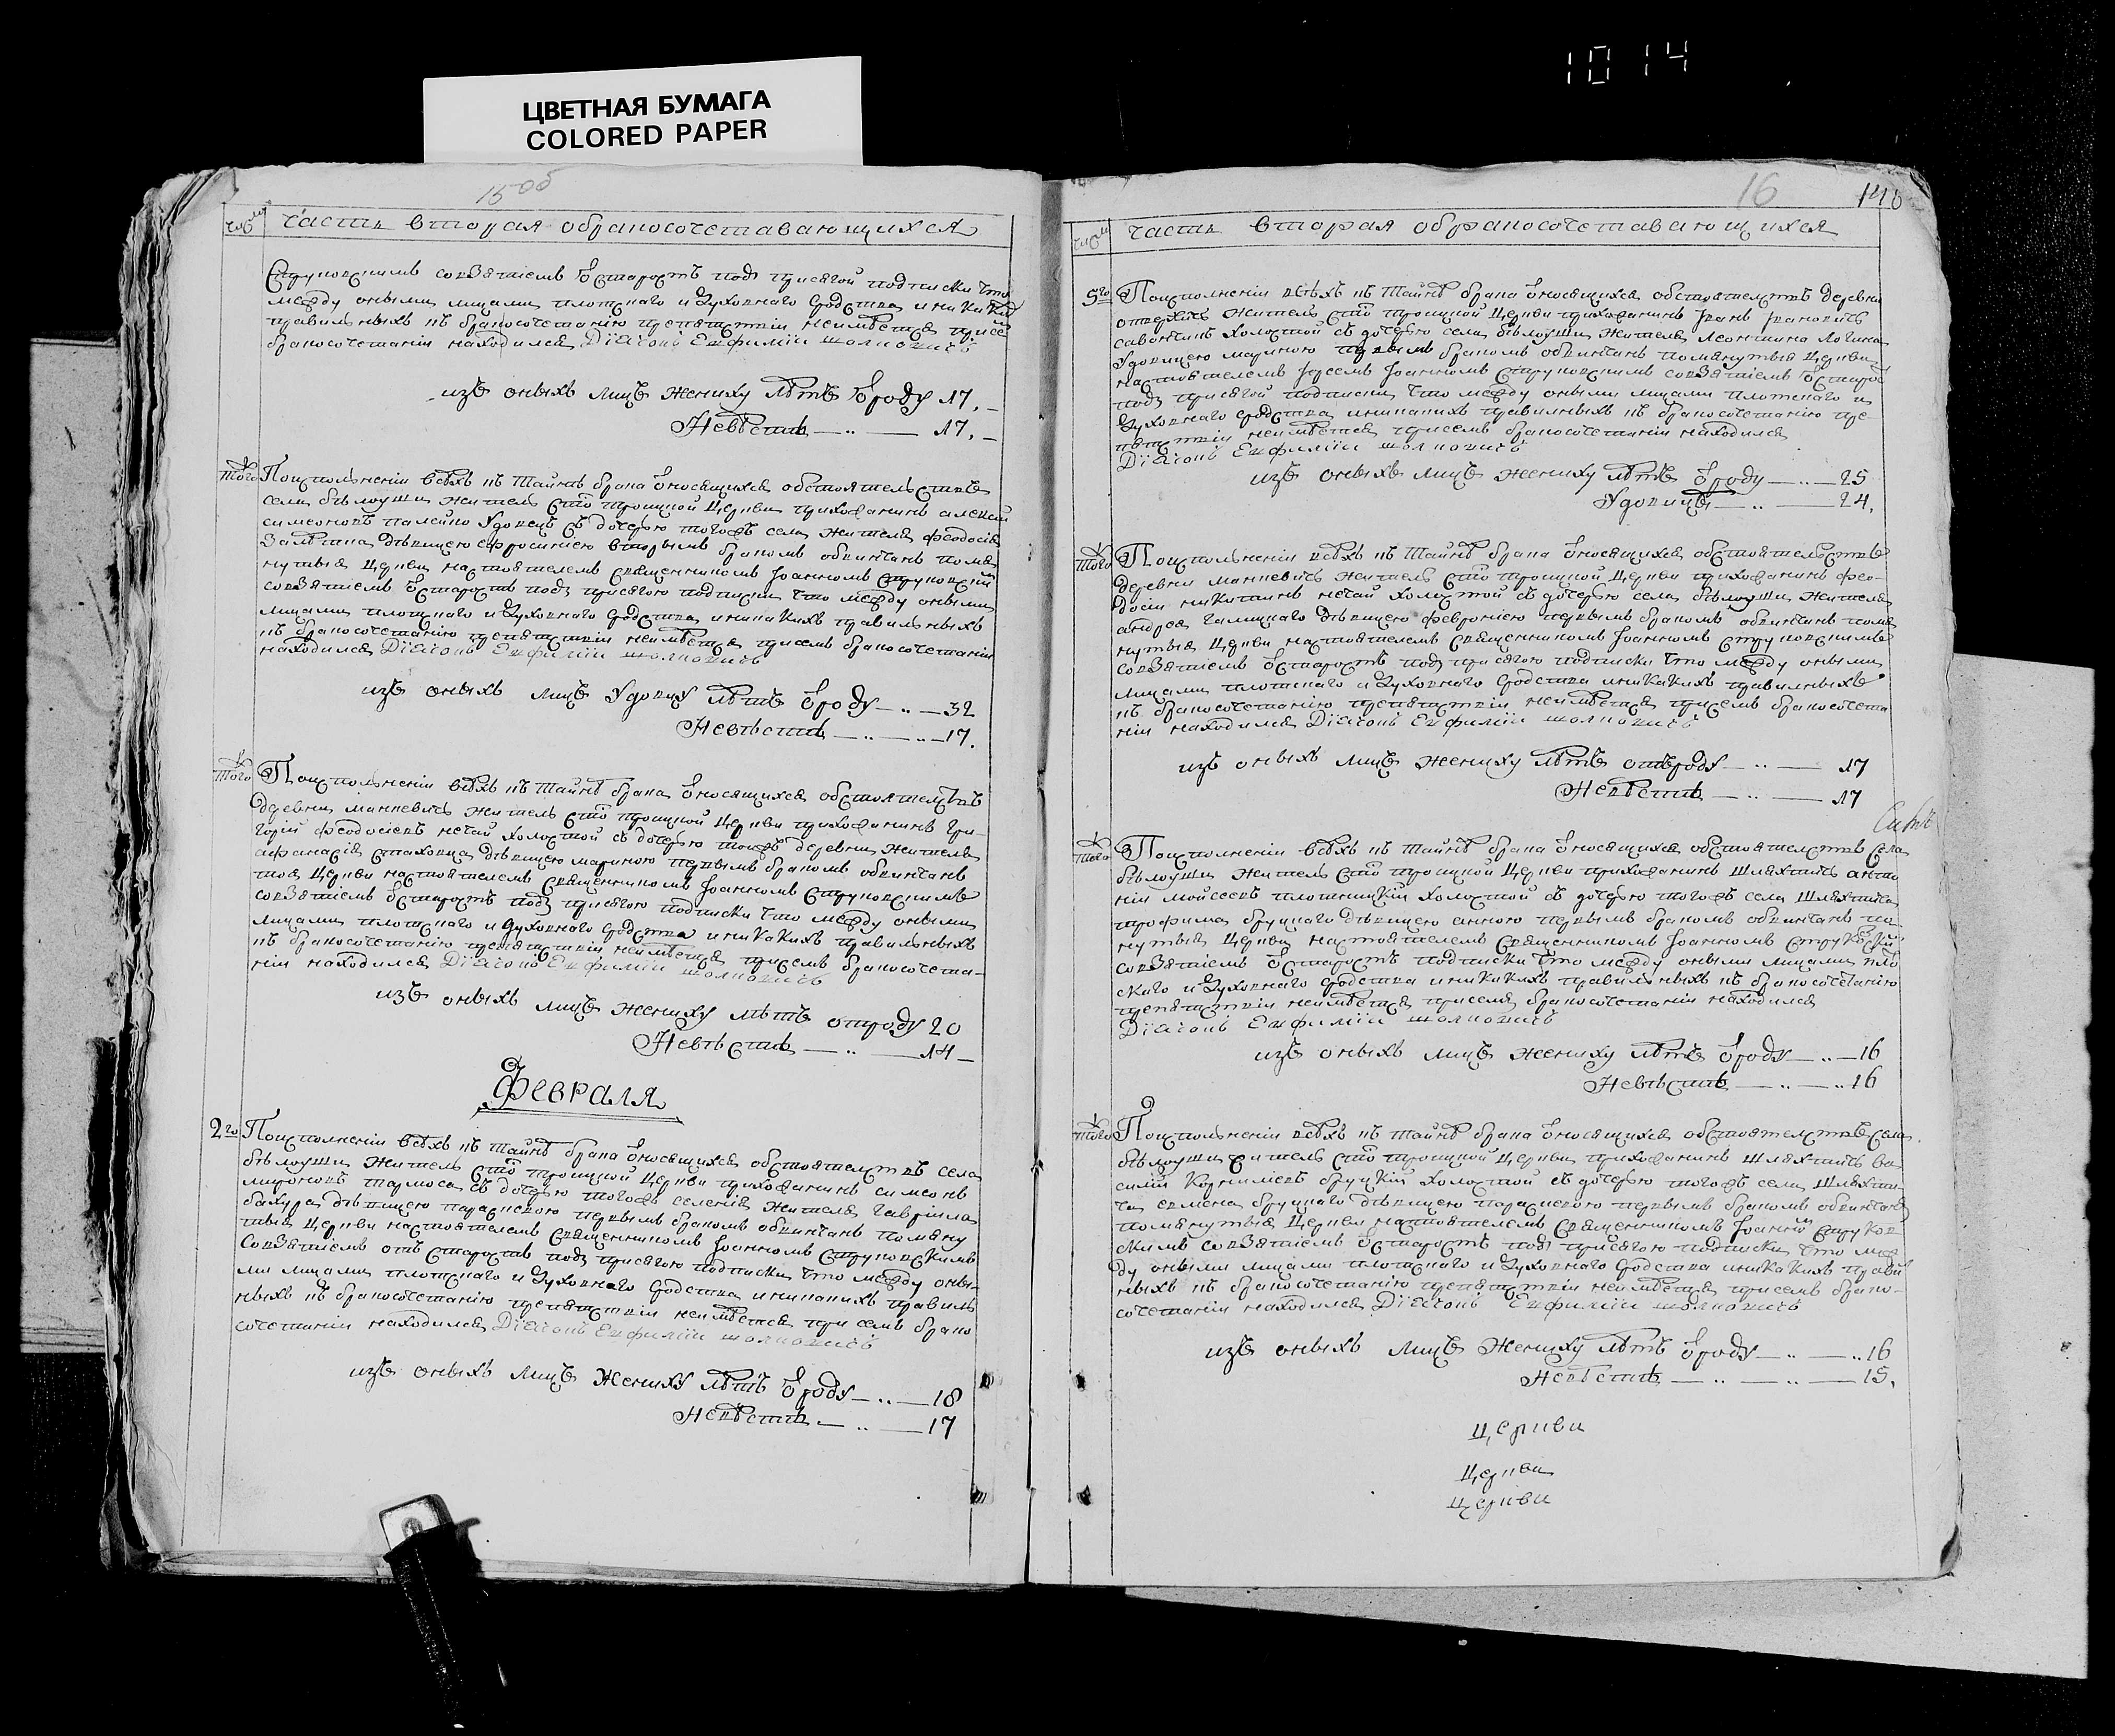 1014
ЦВЕТНАЯ БУМАГА
COLORED PAPER
15 об
Число
часть вторая обракосочетавающихся
Струковскимъ совзятіемъ ѿстаростъ подъ присягой подписки что
между оными лицами плотскаго и духовнаго сродства иникаких
правильныхъ къ бракосочетанію препятствіи неимѣется присемъ
бракосочетаніи находился Діаконъ Евфимій
изъ оныхъ лицъ жениху лѣтъ ѿроду 17.
Невѣстѣ 17.
Того
Поисполненіи всѣхъ къ тайнѣ брака ѿносящихся обстоятельствъ
села бѣлоуши житель сто троицкой церкви прихожанинъ алексій
симеоновъ палейко удовецъ съ дочерью тогожъ села жителя феодосія
дѣвицею ефросиніею вторымъ бракомъ обвѣнчанъ помя
нутыя церкви настоятелемъ священникомъ Іоанномъ Струковскимъ
совзятіемъ ѿстаростъ подъ присягою подписки что между оными
лицами плотскаго и духовнаго сродства иникакихъ правильныхъ
къ бракосочетанію препятствіи неимѣется присемъ бракосочетаніи
находился Діаконъ Евфимій
изъ оныхъ лицъ Удовцу лѣтъ ѿроду 32
Невѣстѣ 17.
Того
Поисполненіи всѣхъ къ тайнѣ брака ѿносящихся обстоятельствъ
деревни манкевичъ житель сто троицкой церкви прихожанинъ гри-
горій феодосіевъ нечай холостой съ дочерью тоежъ деревни жителя
афанасія стаховца дѣвицею мариною первымъ бракомъ обвѣнчанъ
тоя церкви настоятелемъ священникомъ Іоанномъ Струковскимъ
совзятіемъ ѿстаростъ подъ присягою подписки что между оными
лицами плотскаго и духовнаго сродства иникакихъ правильныхъ
къ бракосочетанію препятствіи неимѣется присемъ бракосочета-
ніи находился Діаконъ Евфимій
изъ оныхъ лицъ жениху лѣтъ отроду 20
Невѣстѣ 14
Февраля
2го
Поисполненіи всѣхъ къ тайнѣ брака ѿносящихся обстоятелствъ села
бѣлоуши житель сто троицкой церкви прихожанинъ симеонъ
мироновъ съ дочерью тогожъ селенія жителя гавріила
бахура дѣвицею параскевою первымъ бракомъ обвѣнчанъ помяну
тыя церкви настоятелемъ священникомъ Іоанномъ Струковскимъ
совзятіемъ отъ старостъ подъ присягою подписки что между оны-
ми лицами плотскаго и духовнаго сродства иникакихъ правиль
ныхъ къ бракосочетанію препятствіи неимѣется при семъ брако
сочетаніи находился Діаконъ Евфимій
изъ оныхъ лицъ жениху лѣтъ ѿроду 18
Невѣстѣ 17
16
Число
часть вторая обракосочетавающихся
5го
Поисполненіи всѣхъ къ тайнѣ брака ѿносящихся обстоятелствъ деревни
отвержичъ житель сто троицкой церкви прихожанинъ Іванъ Івановичъ
холостой съ дочерью села бѣлоуши жителя
Удовицею мариною первымъ бракомъ обвѣнчанъ помянутыя церкви
настоятелемъ Іереемъ Іоанномъ Струковскимъ совзятіемъ ѿстарос
подъ присягой подписки что между оными лицами плотскаго и
духовнаго сродства иникакихъ правилныхъ къ бракосочетанію пре-
пятствіи неимѣется присемъ бракосочетаніи находился
Діаконъ Евфимій
изъ оныхъ лицъ жениху лѣтъ ѿроду 25
Удовицѣ 24.
Того
Поисполненіи всѣхъ къ тайнѣ брака ѿносящихся обстоятельствъ
деревни манкевичъ житель сто троицкой церкви прихожанинъ фео-
досій никитинъ нечай холостой съ дочерью села бѣлоуши жителя
андрея галицкаго дѣвицею февроніею первымъ бракомъ обвѣнчанъ помя
нутыя церкви настоятелемъ священникомъ Іоанномъ Струковскимъ
совзятіемъ ѿстаростъ подъ присягою подписки что между оными
лицами плотскаго и духовнаго сродства иникакихъ правилныхъ
къ бракосочетанію препятствіи неимѣется присемъ бракосочета
ніи находился Діаконъ Евфимій
изъ оныхъ лицъ жениху лѣтъ отъроду 17
Невѣстѣ 17
Того
Поисполненіи всѣхъ къ тайнѣ брака ѿносящихся обстоятелствъ села
бѣлоуши житель сто троицкой церкви прихожанинъ шляхтичъ анто
ній мойсеевъ плотницкій холостой съ дочерью тогожъ села шляхтича
трофима друцкаго дѣвицею анною первымъ бракомъ обвѣнчанъ по
нутыя церкви настоятелемъ священникомъ Іоанномъ Струковским
совзятіемъ ѿстаростъ подписки что между оными лицами пло
скаго и духовнаго сродства иникакихъ правильныхъ къ бракосочетанію
препятствіи неимѣется присемъ бракосочетаніи находился
Діаконъ Евфимій
изъ оныхъ лицъ жениху лѣтъ ѿроду 16
Невѣстѣ 16
Того
Поисполненіи всѣхъ къ тайнѣ брака ѿносящихся обстоятелствъ села
бѣлоуши житель сто троицкой церкви прихожанинъ шляхтичъ ва
силій Корниліевъ друцкій холостой съ дочерью тогожъ села шляхти-
ча друцкаго дѣвицею параскевою первымъ бракомъ обвѣнчанъ
помянутыя церкви настоятелемъ священникомъ Іоанномъ Струков
скимъ совзятіемъ ѿстаростъ подъ присягою подписки что меж
ду оными лицами плотскаго и духовнаго сродства иникакихъ прави
ныхъ къ бракосочетанію препятствіи неимѣется присемъ брако-
сочетаніи находился Діаконъ Евфимій
изъ оныхъ лицъ Жениху лѣтъ ѿроду 16
Невѣстѣ 15.
Церкви
Церкви
Церкви